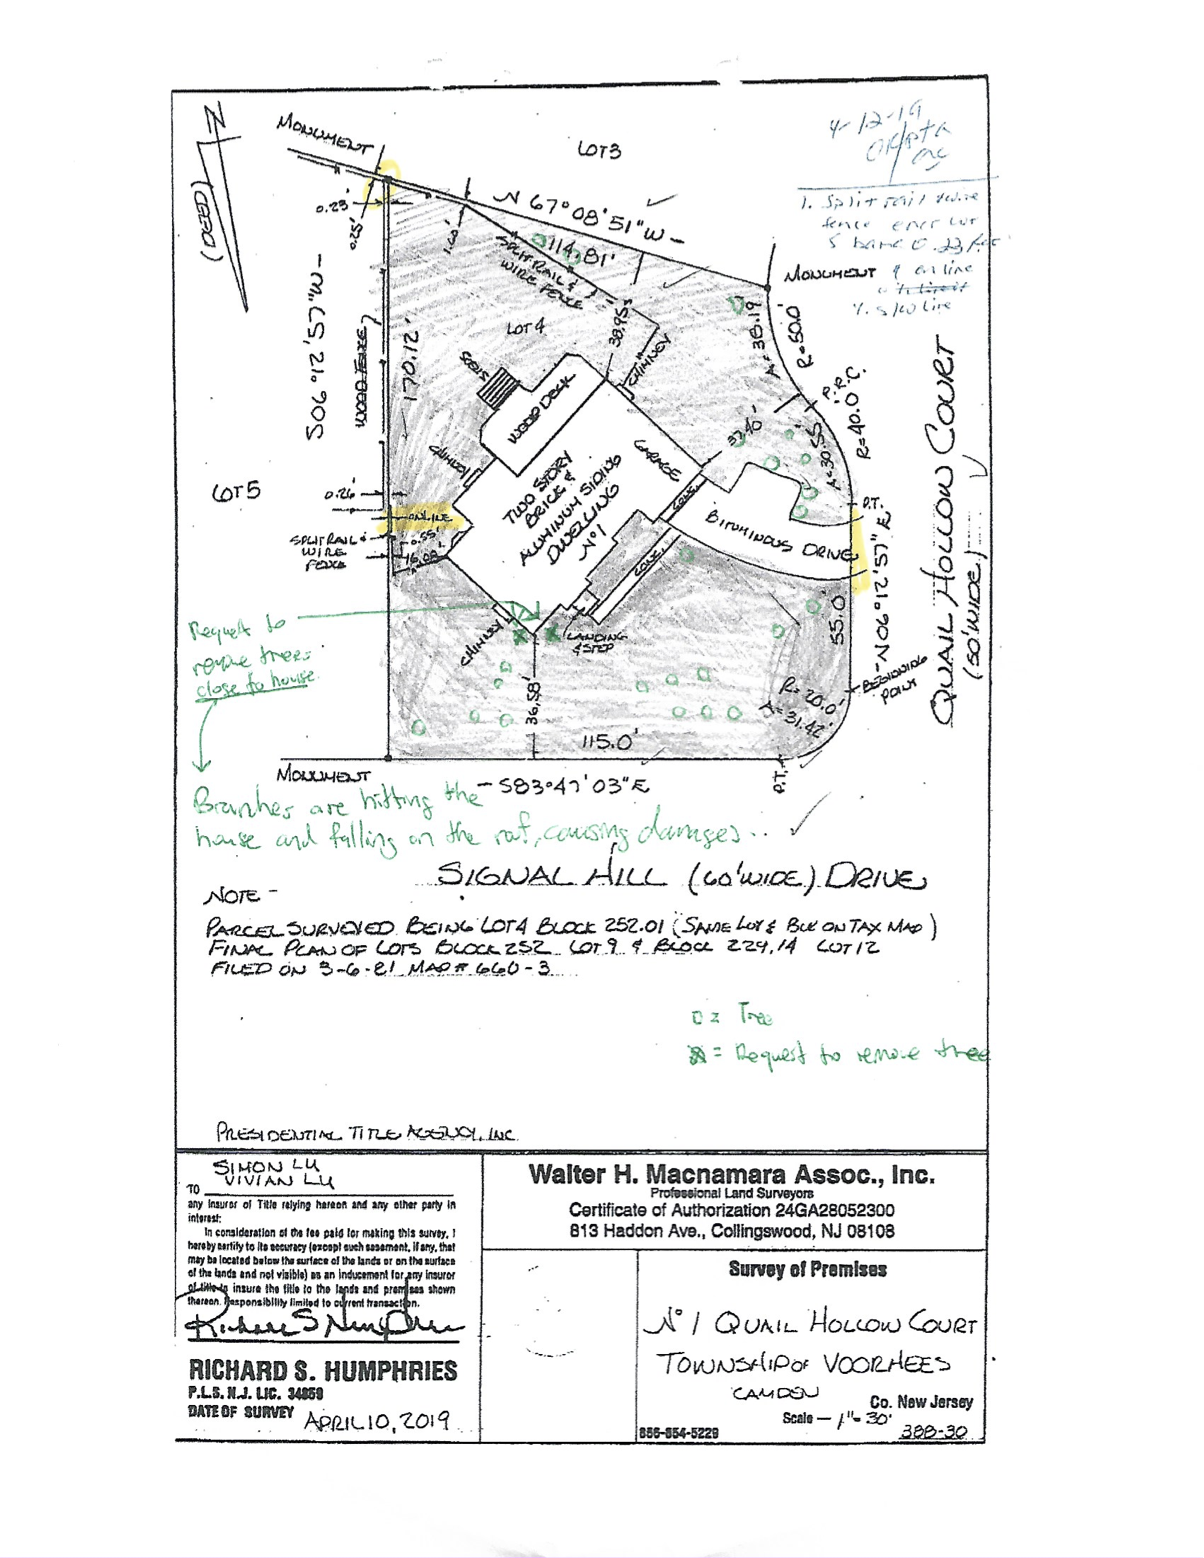 N
(DEED)
MONUMENT
LOT3
4-12-19
1. Split rail & wire
fence encr Lot
MONUMENT & on line
N 67°08'51"W -
114.81'
0.23'
0.25'
1.60'
SPLIT RAIL &
WIRE FENCE
LOT 4
S06°12'57"W -
WOOD FENCE
170.12'
38.95'
CHIMNEY
A=38.19
R=50.0'
P.R.C.
R=40.0'
A=30.55
37.40'
STEPS
WOOD DECK
CHIMNEY
GARAGE
TWO STORY
BRICK &
ALUMINUM SIDING
DWELLING
Nº1
CONC.
CONC.
BITUMINOUS DRIVE
P.T.
LOT5
0.26'
ONLINE
0.55'
SPLIT RAIL &
WIRE
FENCE
16.08'
QUAIL HOLLOW COURT
(50'WIDE)
-N06°12'57"E
55.0'
BEGINNING
POINT
R=20.0'
A=31.42'
CHIMNEY
LANDING
& STEP
36.58'
Request to
remove trees
close to house
115.0'
P.T.
MONUMENT
- S83°47'03"E
Branches are hitting the
house and falling on the roof, causing damages..
SIGNAL HILL (60'WIDE) DRIVE
NOTE -
PARCEL SURVEYED BEING LOT 4 BLOCK 252.01 (SAME LOT & BLK ON TAX MAP)
FINAL PLAN OF LOTS BLOCK 252 LOT 9 & BLOCK 229.14 LOT 12
FILED ON 3-6-81 MAP # 660-3
= Tree
= Request to remove tree
PRESIDENTIAL TITLE AGENCY, INC
SIMON LU
VIVIAN LU
TO
any insuror of Title relying hereon and any other party in
interest:
In consideration of the fee paid for making this survey, I
hereby certify to its accuracy (except such easement, if any, that
may be located below the surface of the lands or on the surface
of the lands and not visible) as an inducement for any insuror
of title to insure the title to the lands and premises shown
thereon. Responsibility limited to current transaction.
RICHARD S. HUMPHRIES
P.L.S. N.J. LIC. 34859
DATE OF SURVEY APRIL 10, 2019
Walter H. Macnamara Assoc., Inc.
Professional Land Surveyors
Certificate of Authorization 24GA28052300
813 Haddon Ave., Collingswood, NJ 08108
Survey of Premises
Nº 1 QUAIL HOLLOW COURT
TOWNSHIP OF VOORHEES
CAMDEN
Co. New Jersey
Scale — 1"= 30'
856-854-5229
388-30